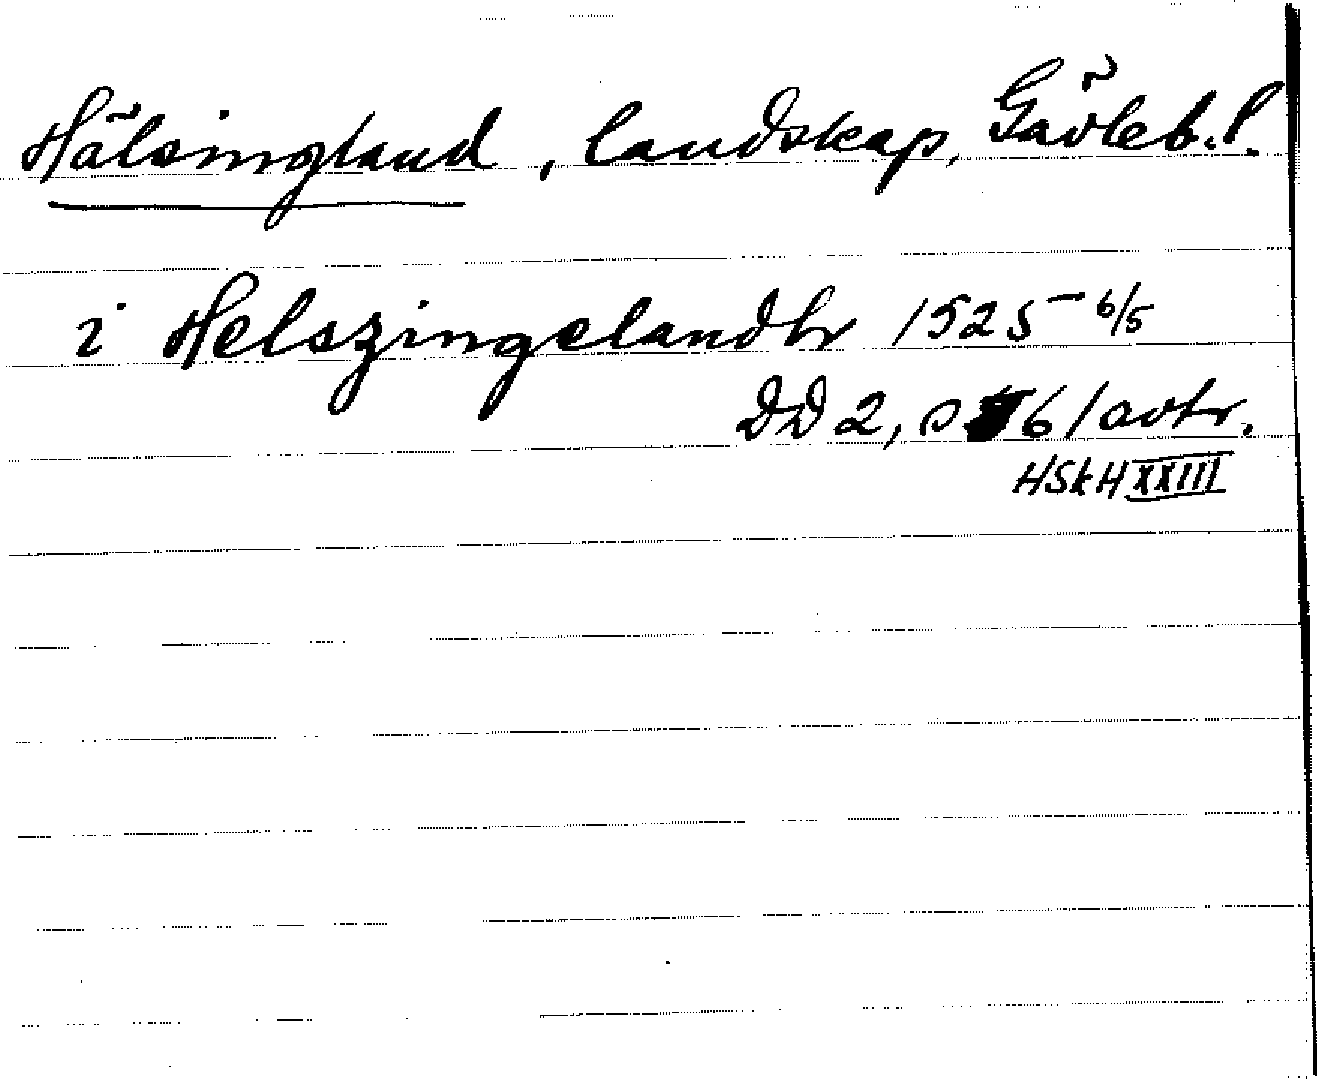 Hälsingland, landskap, Gävleb.l.
i Helszingelandh 1525 6/5
DD 2, s 61 avtr.
HSkH XXIII